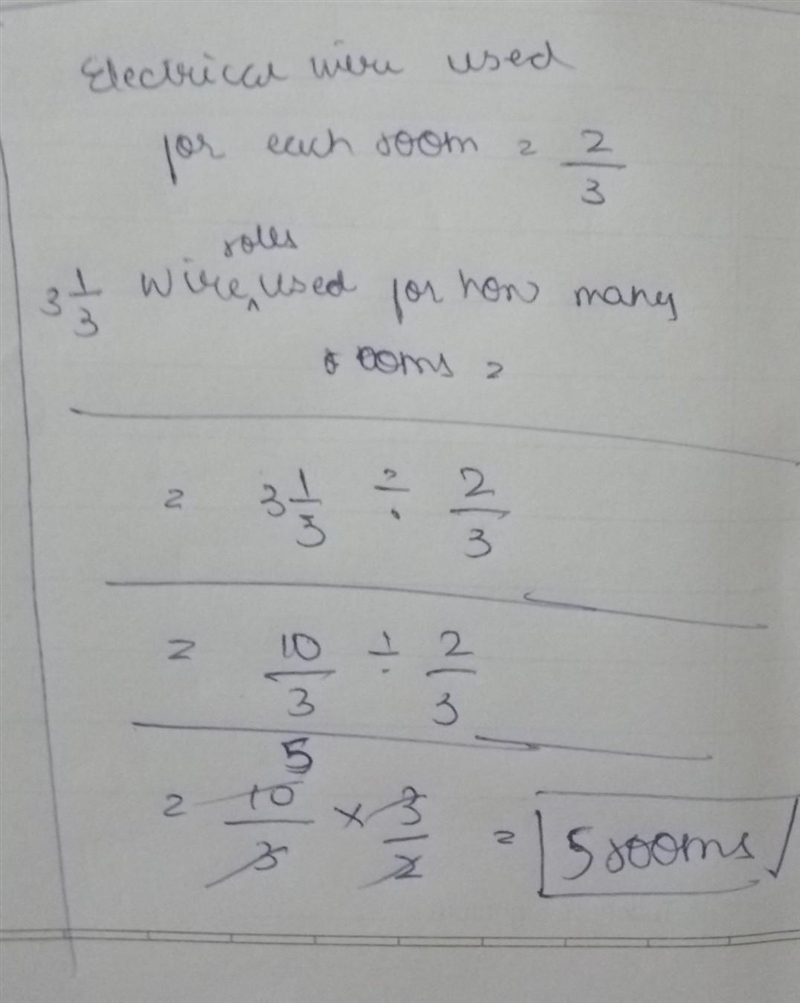 Electrical wire used
for each room = 2/3
rolls
3 1/3 wire ^ used for how many
rooms =
= 3 1/3 ÷ 2/3
= 10/3 ÷ 2/3
5
= 10/3 × 3/2 = 5 rooms